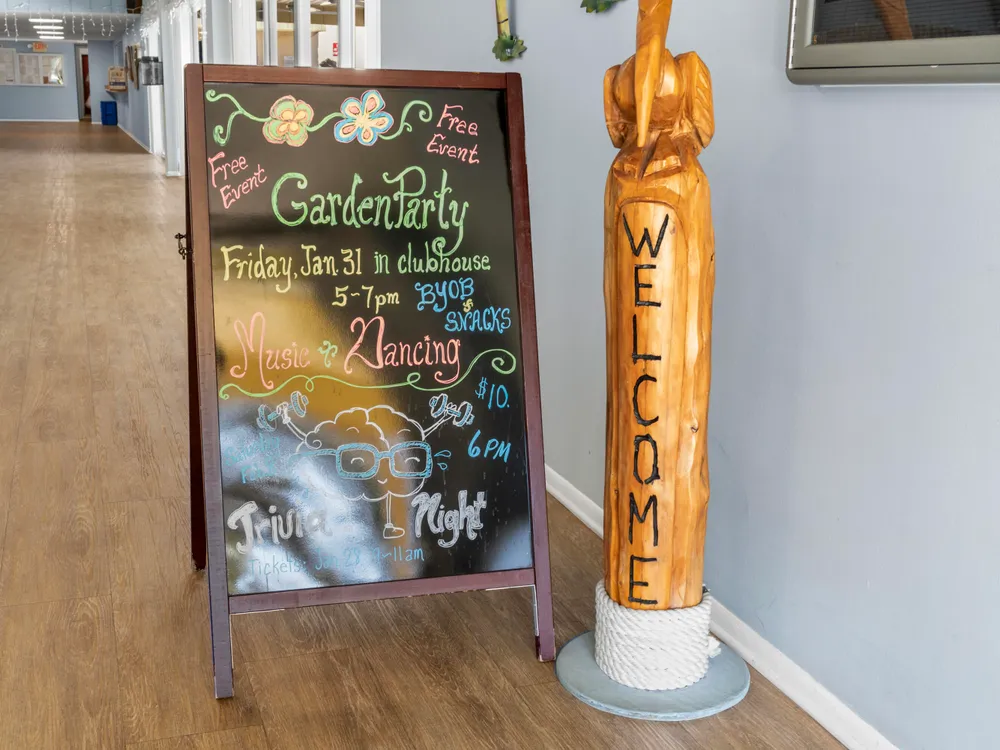 Free Event
Free Event
Garden Party
Friday, Jan 31 in clubhouse
5-7pm
BYOB & SNACKS
Music & Dancing
$10.
6PM
Trivia Night
Tickets:
11am
WELCOME